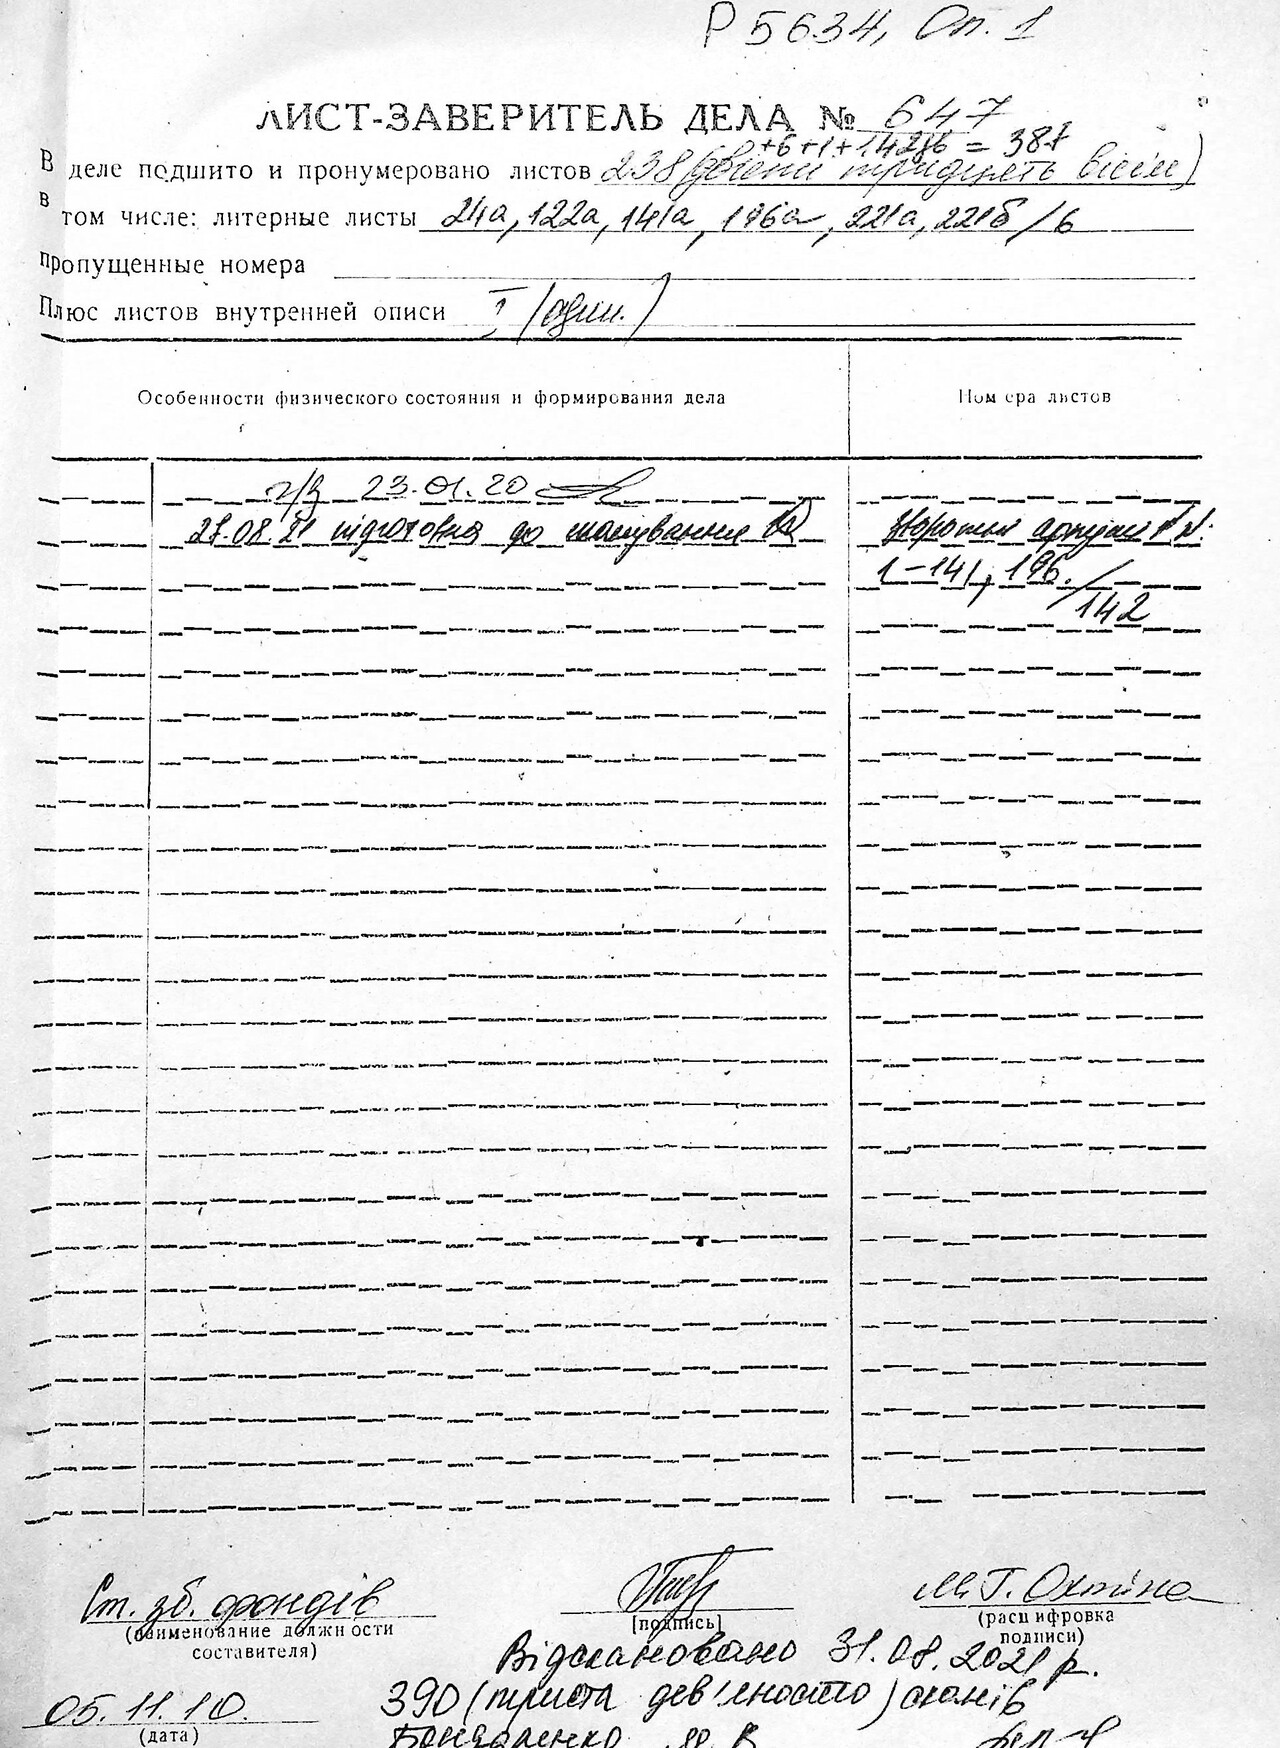 Р 5634, Оп. 1
ЛИСТ-ЗАВЕРИТЕЛЬ ДЕЛА № 647
+6+1+142 = 387
В деле подшито и пронумеровано листов 238 (двісті тридцять вісім)
в том числе: литерные листы 24а, 122а, 141а, 196а, 221а, 221б / 6
пропущенные номера
Плюс листов внутренней описи 1 (один.)
Особенности физического состояния и формирования дела
Номера листов
23.01.20
27.08.21 підготовка до сканування
Звороти аркушів
1-141, 196. / 142
Ст. зб. фондів
М. Г. Охтіна
(наименование должности составителя)
(подпись)
(расшифровка подписи)
Відскановано 31.08.2021 р.
05.11.10.
390 (триста дев'яносто) сканів
(дата)
Бондаренко